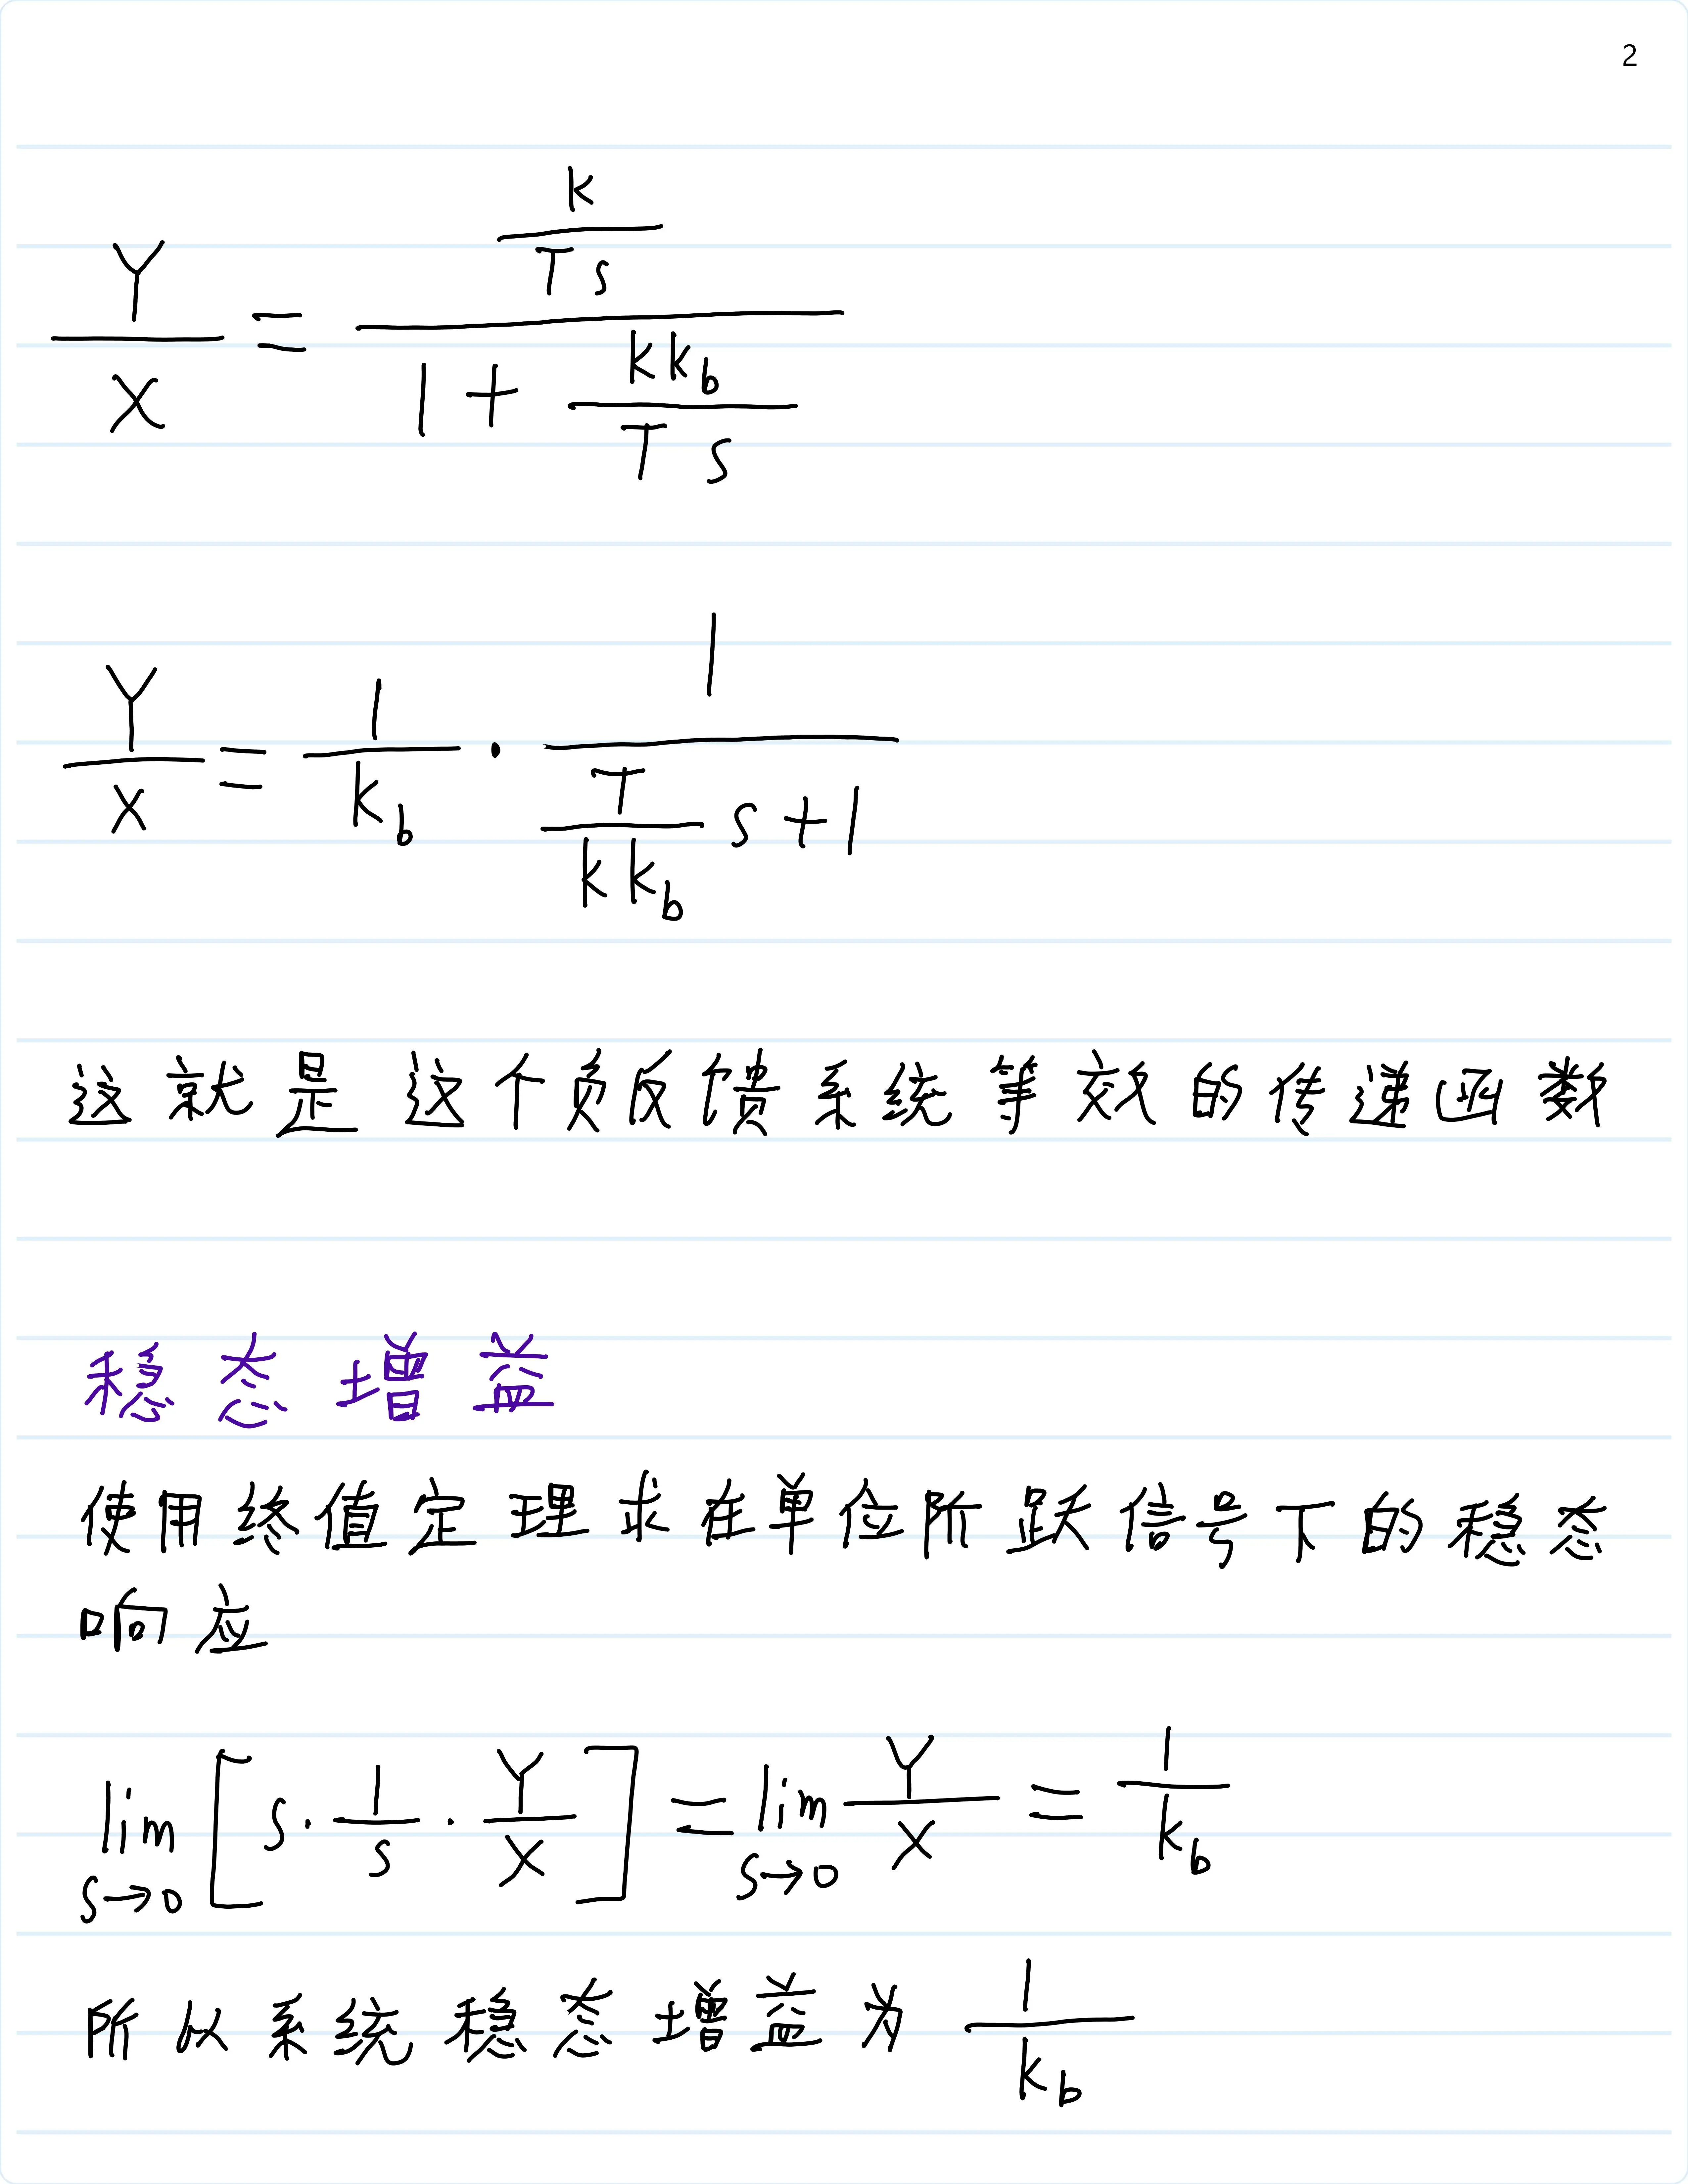 2
Y/X = (k/(Ts))/(1+(kk_b)/(Ts))
Y/X = 1/k_b · 1/(T/(kk_b) s+1)
这就是这个负反馈系统等效的传递函数
稳态增益
使用终值定理求在单位阶跃信号下的稳态
响应
lim s→0 [s·1/s·Y/X] = lim s→0 Y/X = 1/k_b
所以系统稳态增益为 1/k_b